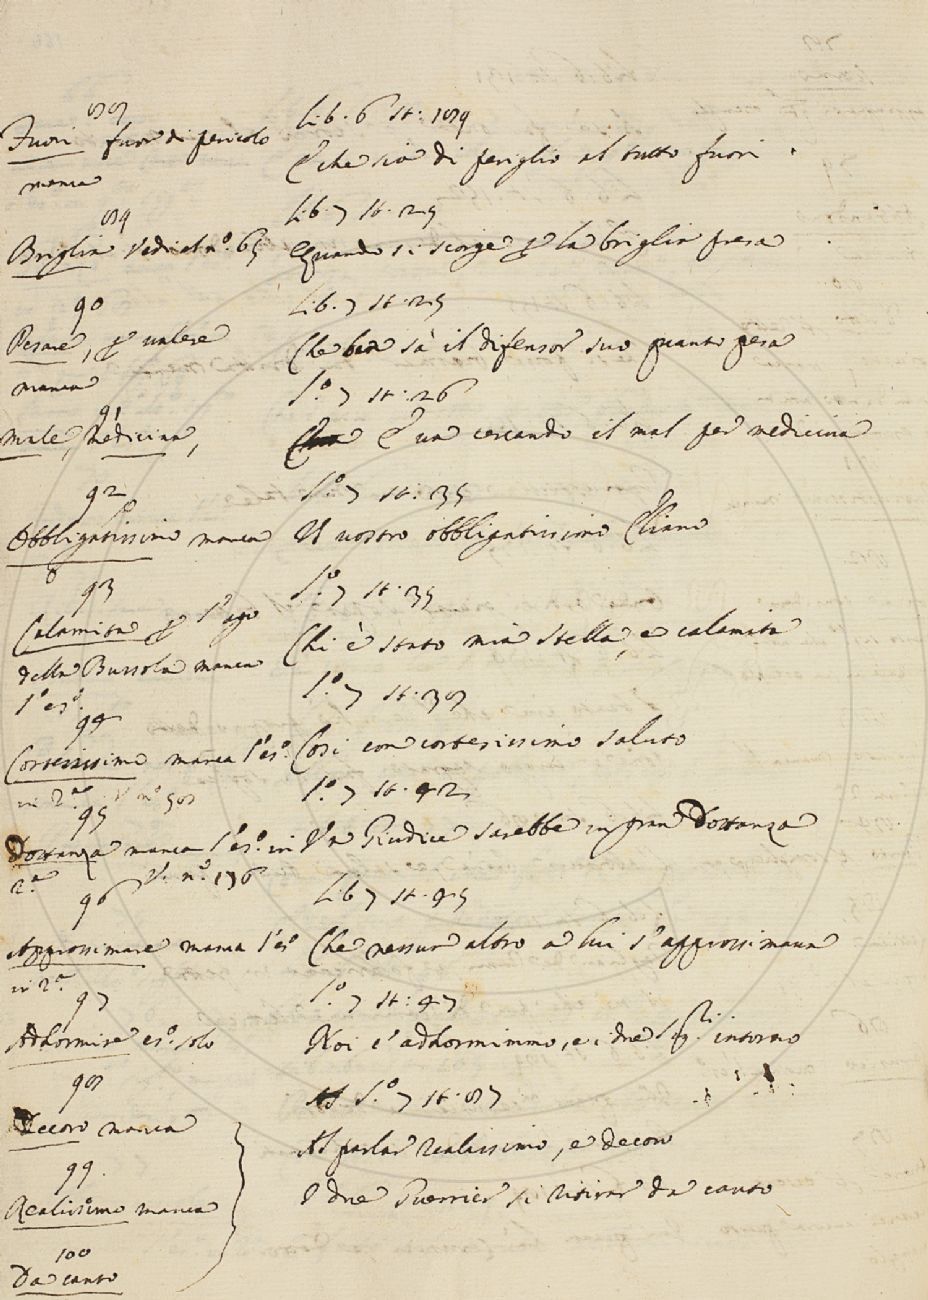 88
Lib. 6 st: 104
Fuori fuor di pericolo
manca
E che sia di periglio al tutto fuori
89
Lib. 7 st. 25
Briglia Vedi al n.º 65
Quando si scorge la briglia presa
90
Lib. 7 st. 25
Pesare, valere
manca
Che ben sà il difensor suo quanto pesa
91
l.º 7 st. 26
Male, Medicina,
E va cercando il mal per medicina
92
l.º 7 st: 35
Obbligatissimo manca
Il vostro obbligatissimo
93
l.º 7 st. 35
Calamita l'ago
della Bussola manca
l'es.º
Chi è stato mia stella, e calamita
94
l.º 7 st. 38
Cortesissimo manca l'es.º
in 2.ª V. n.º 508
Così con cortesissimo saluto
95
l.º 7 st. 42
Dottanza manca l'es.º in
2.ª V. n.º 176
V'n Giudice sarebbe in gran Dottanza
96
Lib 7 st. 45
Approssimare manca l'es.º
in 2.ª
Che nessun altro a lui s'approssimava
97
l.º 7 st: 47
Adhormire es.º solo
Noi c'adhormimmo, e i due intorno
98
l.º 7 st. 87
Decoro manca
Al parlar realissimo, e decoro
99.
Realissimo manca
I due Guerrier si ritirar da canto
100
Da canto